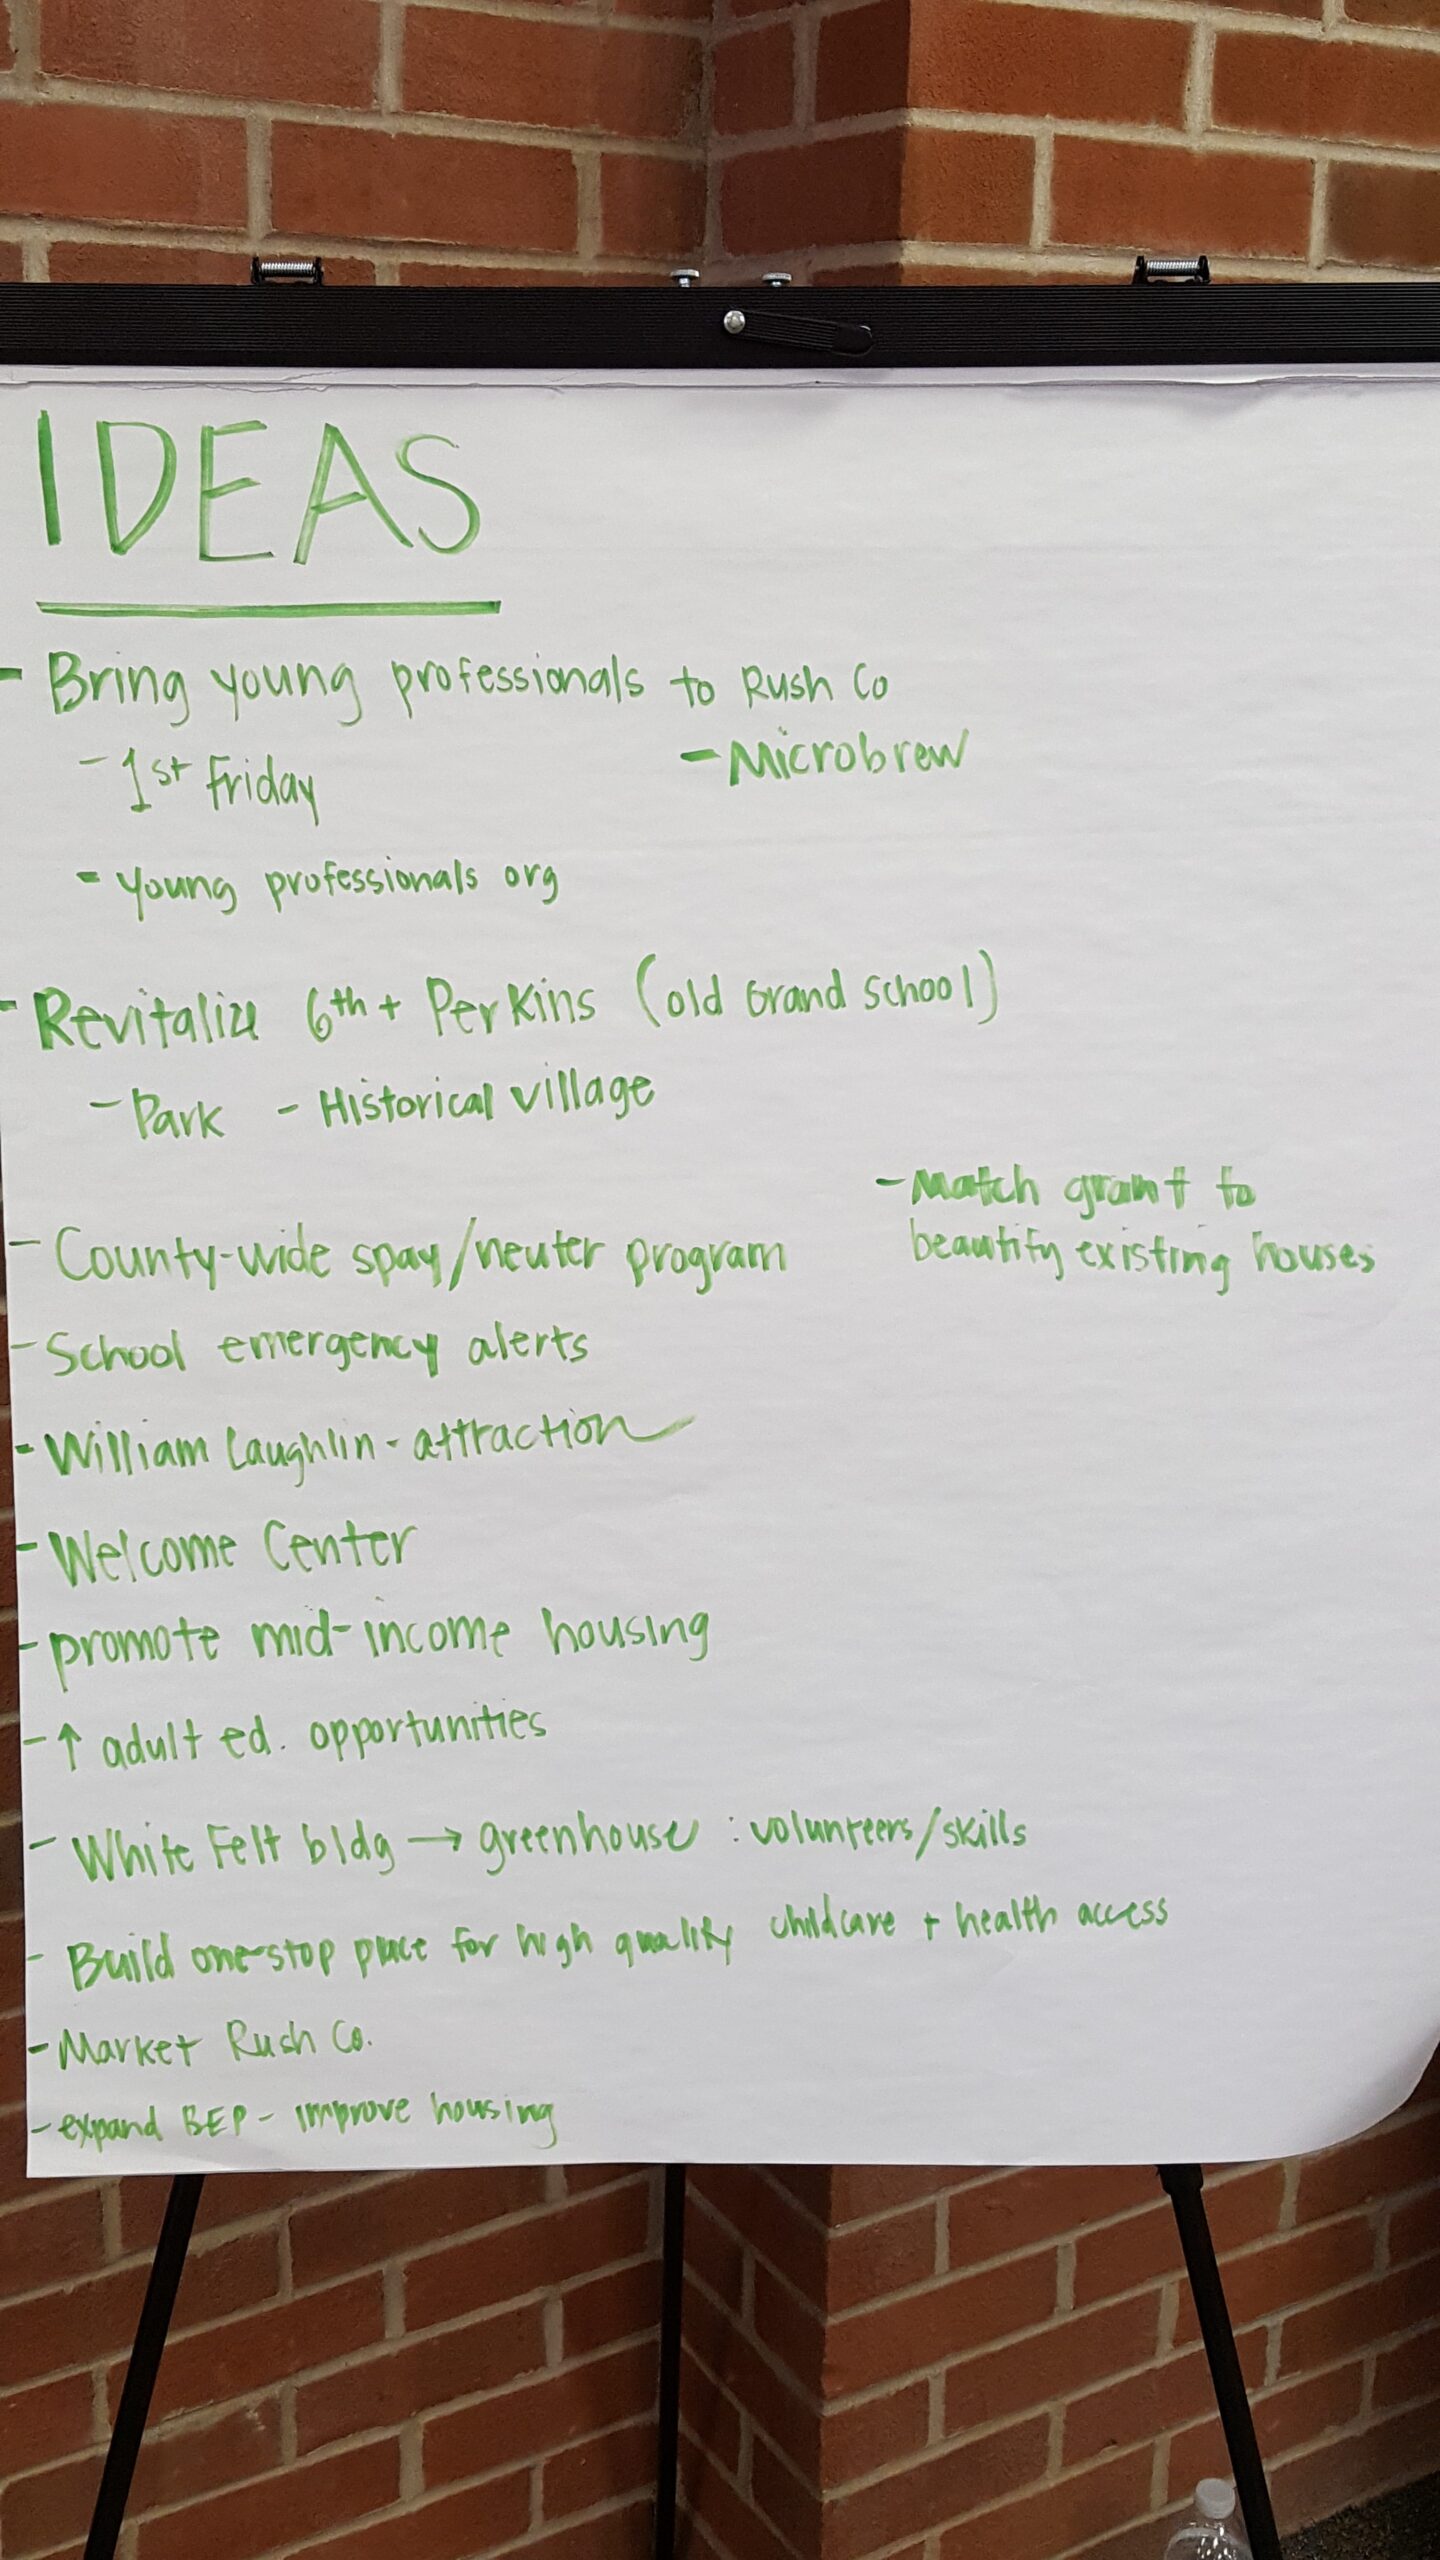 IDEAS
- Bring young professionals to Rush Co
- 1st Friday
- Microbrew
- young professionals org
- Revitalize 6th + Perkins (old Grand School)
- Park - Historical village
- Match grant to
beautify existing houses
- County-wide spay/neuter program
- School emergency alerts
- William Laughlin - attraction
- Welcome Center
- promote mid-income housing
- ↑ adult ed. opportunities
- White Felt bldg → greenhouse : volunteers/skills
- Build one-stop place for high quality childcare + health access
- Market Rush Co.
- expand BEP - improve housing